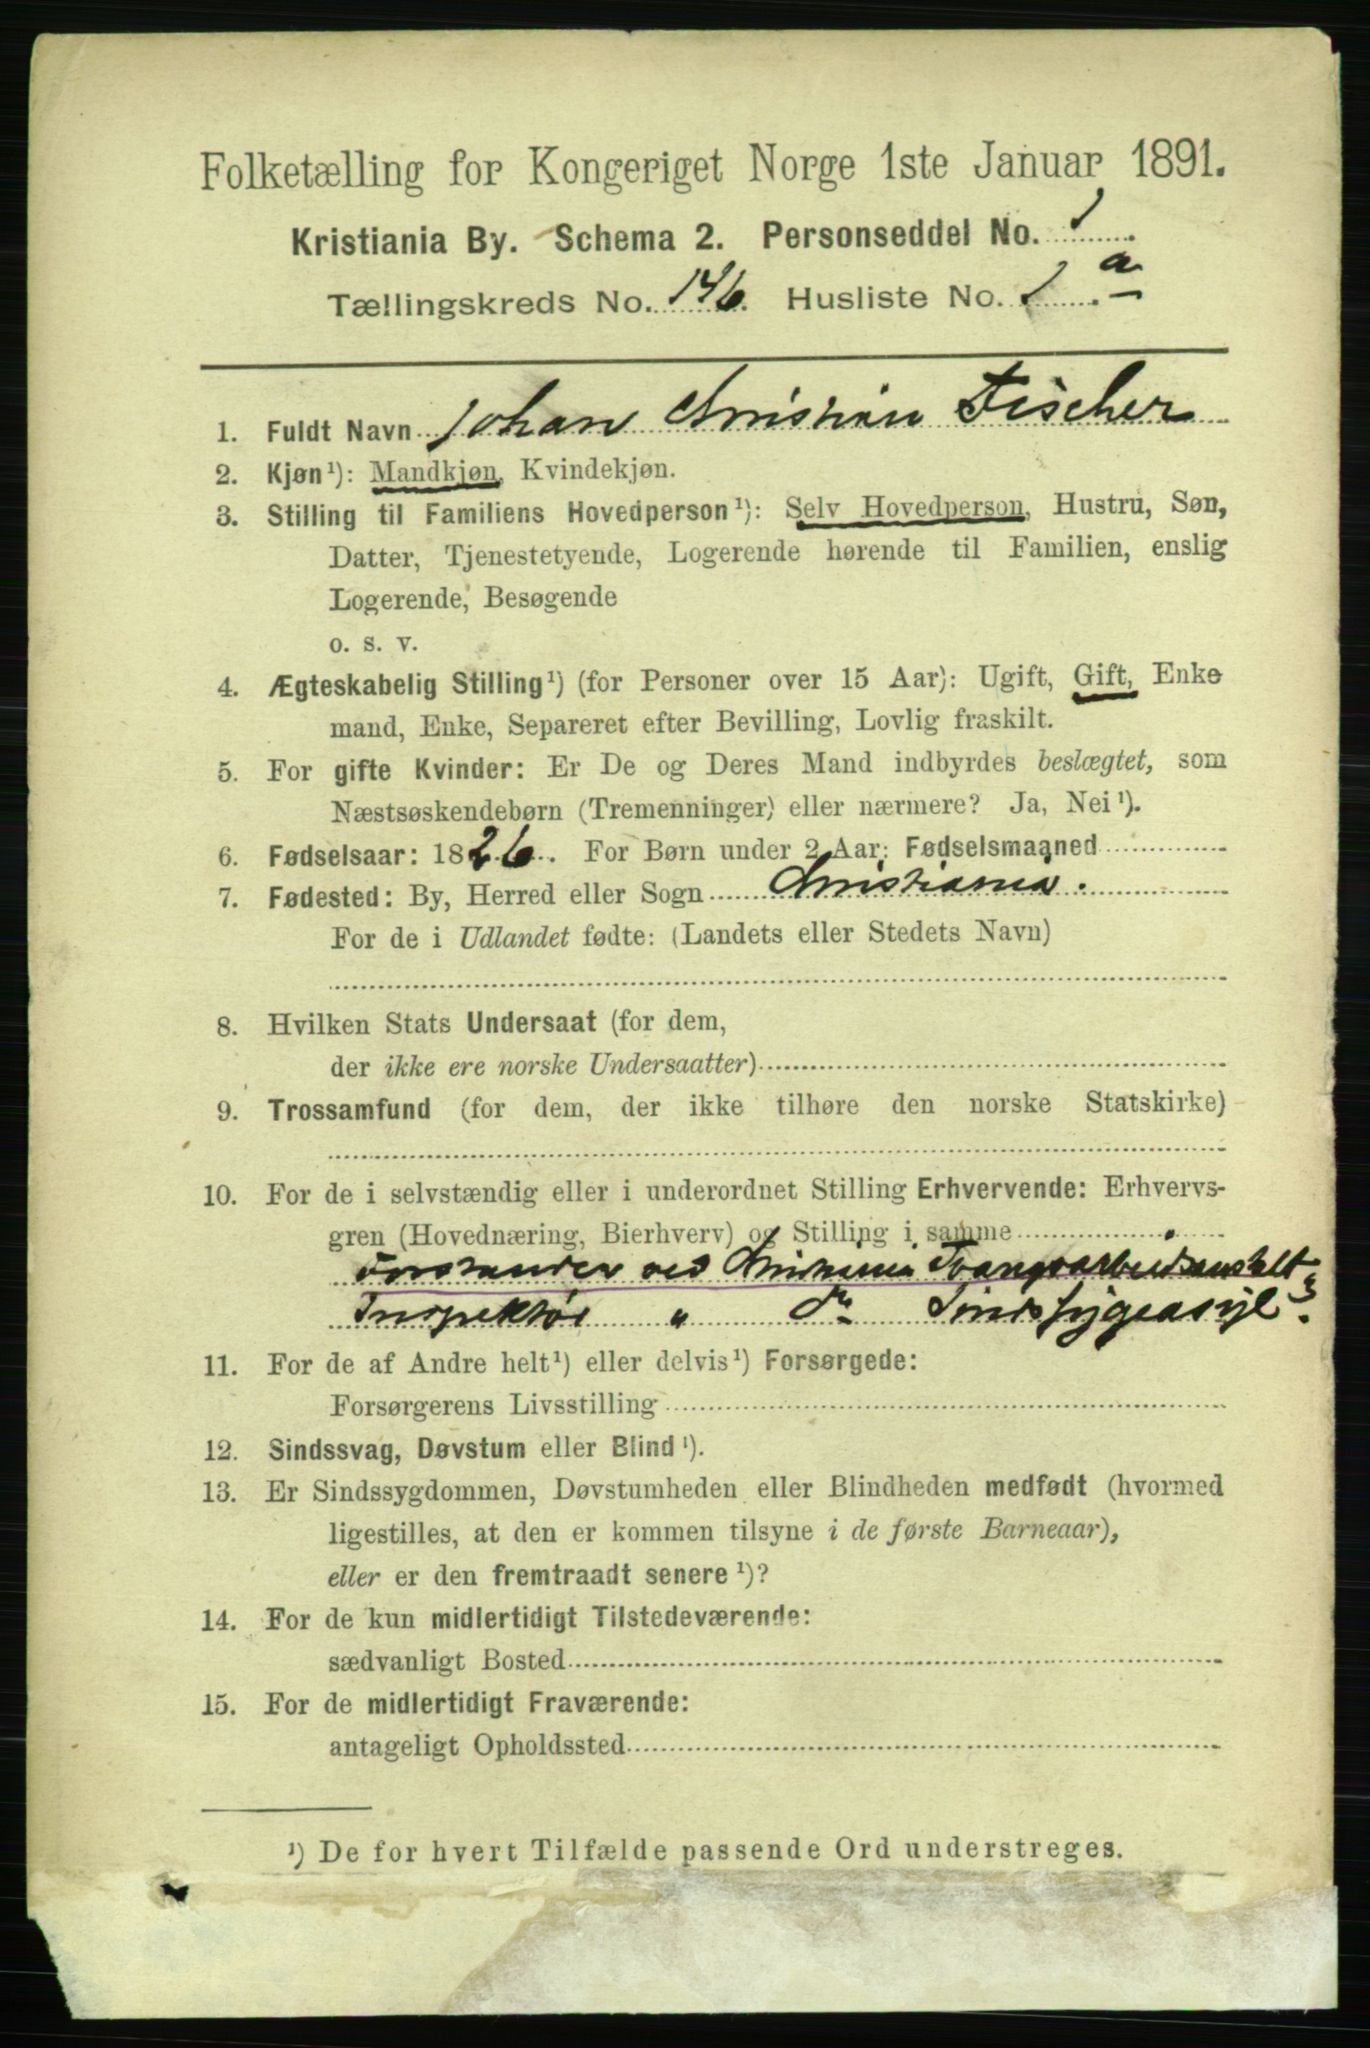 Folketælling for Kongeriget Norge 1ste Januar 1891.
Kristiania By. Schema 2. Personseddel No. 1
Tællingskreds No. 146. Husliste No. 1. a
1. Fuldt Navn Johan Christian Fischer
2. Kjøn¹): Mandkjøn, Kvindekjøn.
3. Stilling til Familiens Hovedperson¹): Selv Hovedperson, Hustru, Søn,
Datter, Tjenestetyende, Logerende hørende til Familien, enslig
Logerende, Besøgende
o. s. v.
4. Ægteskabelig Stilling¹) (for Personer over 15 Aar): Ugift, Gift, Enke
mand, Enke, Separeret efter Bevilling, Lovlig fraskilt.
5. For gifte Kvinder: Er De og Deres Mand indbyrdes beslægtet, som
Næstsøskendebørn (Tremenninger) eller nærmere? Ja, Nei¹).
6. Fødselsaar: 1826. For Børn under 2 Aar: Fødselsmaaned
7. Fødested: By, Herred eller Sogn Christiania.
For de i Udlandet fødte: (Landets eller Stedets Navn)
8. Hvilken Stats Undersaat (for dem,
der ikke ere norske Undersaatter)
9. Trossamfund (for dem, der ikke tilhøre den norske Statskirke)
10. For de i selvstændig eller i underordnet Stilling Erhvervende: Erhvervs-
gren (Hovednæring, Bierhverv) og Stilling i samme
Forstander ved Christiania Tvangsarbeidsanstalt
Inspektør " do Sindssygeasyl.
11. For de af Andre helt¹) eller delvis¹) Forsørgede:
Forsørgerens Livsstilling
12. Sindssvag, Døvstum eller Blind¹).
13. Er Sindssygdommen, Døvstumheden eller Blindheden medfødt (hvormed
ligestilles, at den er kommen tilsyne i de første Barneaar),
eller er den fremtraadt senere¹)?
14. For de kun midlertidigt Tilstedeværende:
sædvanligt Bosted
15. For de midlertidigt Fraværende:
antageligt Opholdssted
¹) De for hvert Tilfælde passende Ord understreges.